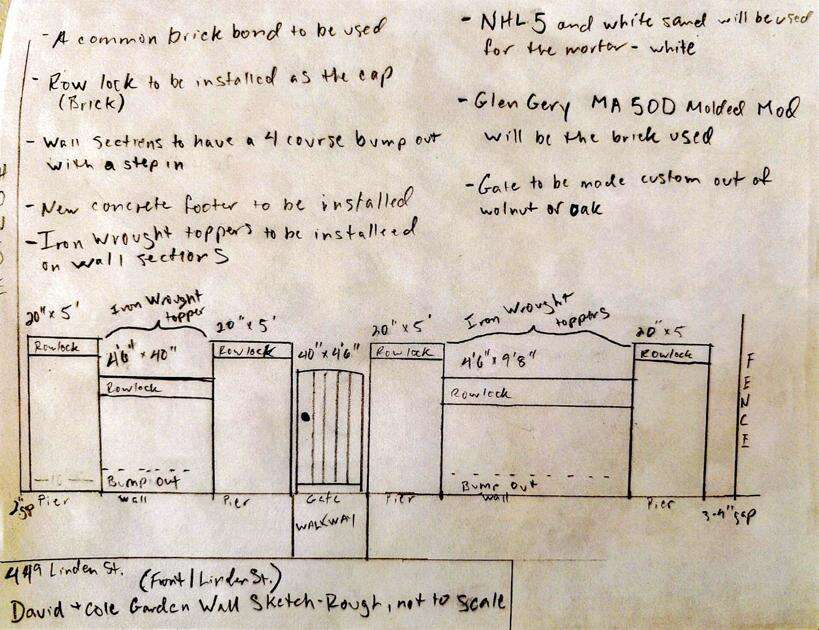 - A common brick bond to be used
- Row lock to be installed as the cap
(Brick)
- Wall Sections to have a 4 course bump out
with a step in
- New concrete footer to be installed
- Iron Wrought toppers to be installeed
on wall sections
- NHL 5 and white sand will be used
for the mortar - white
- Glen Gery MA 50D Molded Mod
will be the brick used
- Gate to be made custom out of
walnut or oak
20" x 5'
Iron Wrought
topper
20" x 5'
20" x 5'
Iron Wrought
toppers
20" x 5
Rowlock
4'6" x 40"
Rowlock
40" x 4'6"
Rowlock
4'6" x 9'8"
Rowlock
Rowlock
Rowlock
FENCE
Bump Out
Bump Out
2" gap
Pier
wall
Pier
Gate
Pier
wall
Pier
3-4" gap
WALKWAY
449 Linden St.
(Front / Linden St.)
David + Cole Garden Wall Sketch-Rough, not to scale